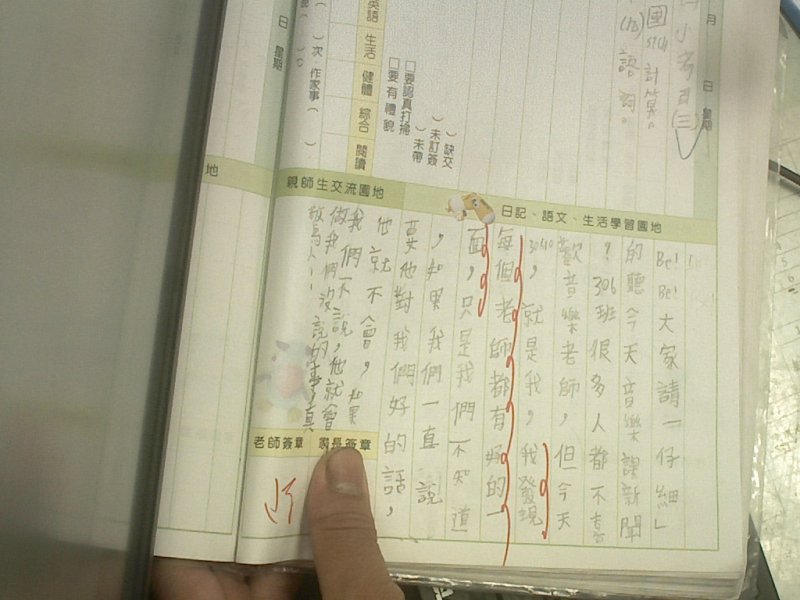 月 日 星期
小考日(三)
國 計算。
語詞。
英語 生活 健體 綜合 閱讀
( )缺交
( )未訂簽
( )未帶
□要認真打掃
□要有禮貌
( )次 作家事( )
日 星期
日記、語文、生活學習園地
Be! Be! 大家請一仔細
的聽今天音樂課新聞
? 306班很多人都不喜
歡音樂老師,但今天
,就是我,我發現
每個老師都有好的一
面,只是我們不知道
,如果我們一直說
要他對我們好的話,
他就不會,如果
我們不說,他就會
做我們沒說的事,真
親師生交流園地
家長簽章
老師簽章
地